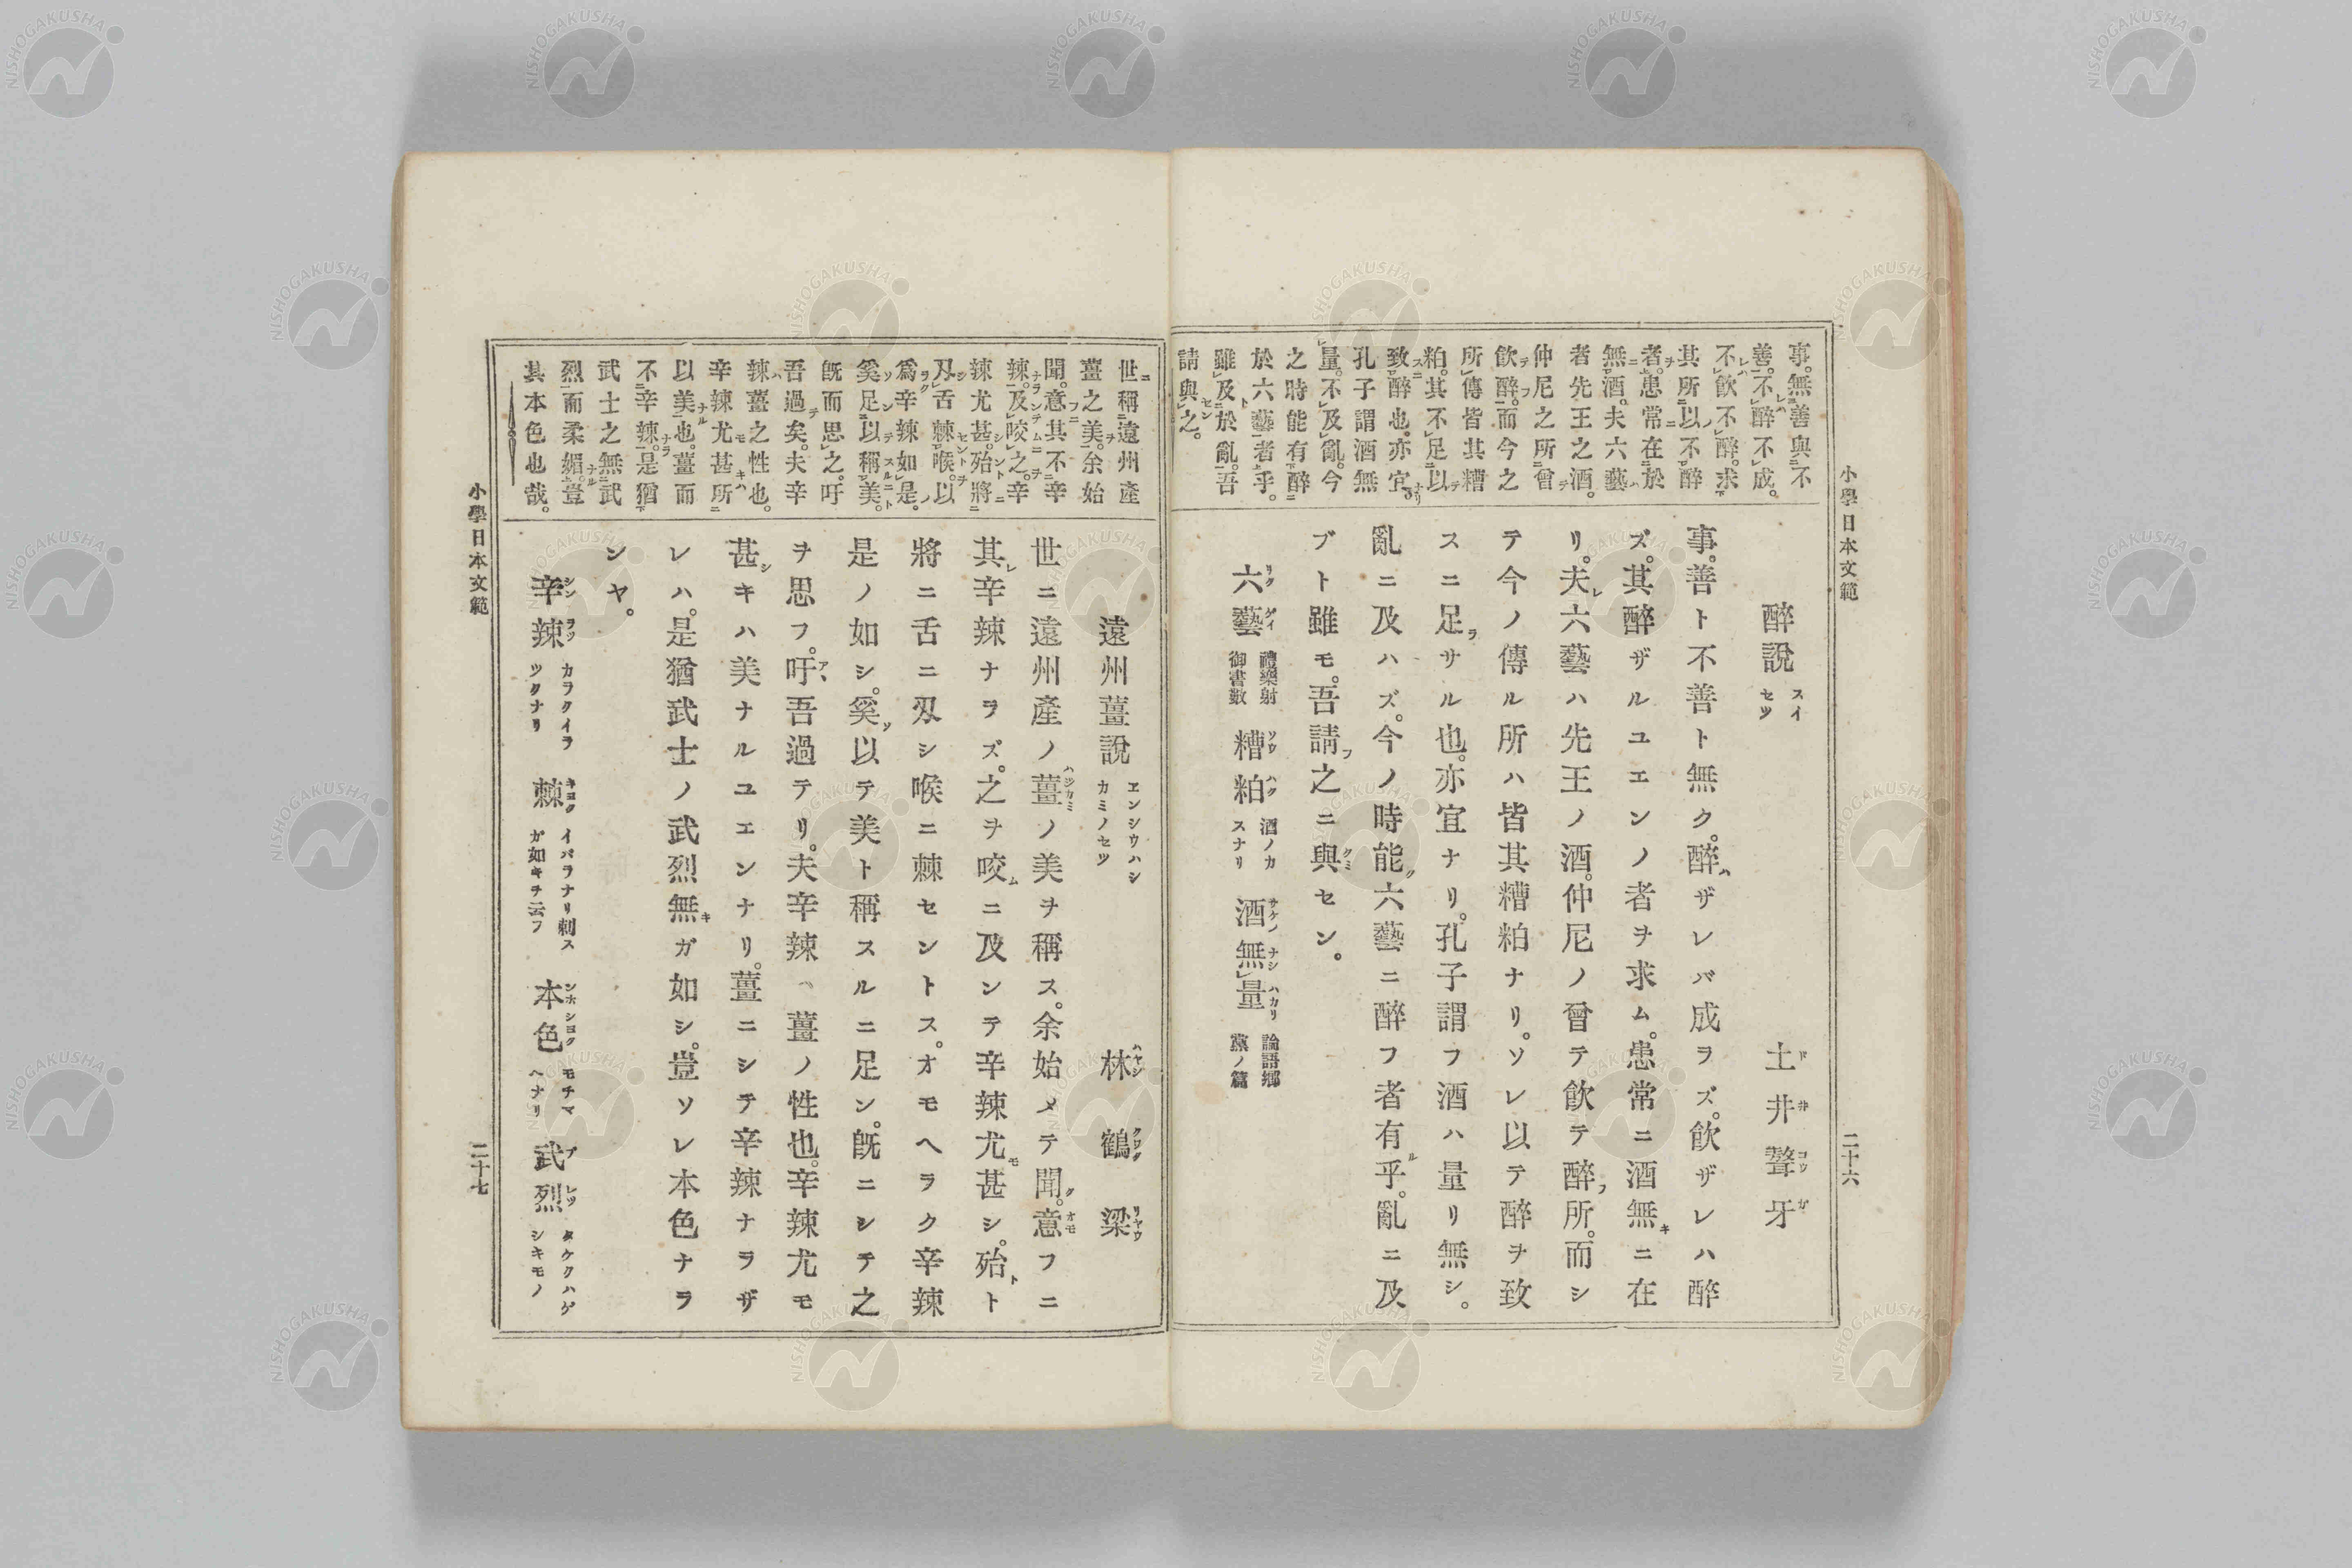 小學日本文範
二十六
事。無善與不
善。不醉不成。
不飮不醉。求
其所以不醉
者。患常在於
無酒。夫六藝
者先王之酒。
仲尼之所曾
飮醉。而今之
所傳皆其糟
粕。其不足以
致醉也。亦宜。
孔子謂酒無
量。不及亂。今
之時能有醉
於六藝者乎。
雖及於亂。吾
請與之。
醉說 スイセツ
土井聱牙
事。善ト不善ト無ク。醉ザレバ成ラズ。飮ザレハ醉
ズ。其醉ザルユエンノ者ヲ求ム。患常ニ酒無ニ在
リ。夫六藝ハ先王ノ酒。仲尼ノ曾テ飮テ醉所。而シ
テ今ノ傳ル所ハ皆其糟粕ナリ。ソレ以テ醉ヲ致
スニ足サル也。亦宜ナリ。孔子謂フ酒ハ量リ無シ。
亂ニ及ハズ。今ノ時能六藝ニ醉フ者有乎。亂ニ及
ブト雖モ。吾請之ニ與セン。
六藝 禮樂射御書數 糟粕 酒ノカスナリ 酒無量 論語鄕黨ノ篇
世稱遠州產
薑之美。余始
聞。意其不辛
辣。及咬之。辛
辣尤甚。殆將
刄舌棘喉。以
爲辛辣如是。
奚足以稱美。
旣而思之。吁
吾過矣。夫辛
辣薑之性也。
辛辣尤甚所
以美也。薑而
不辛辣。是猶
武士之無武
烈而柔媚。豈
其本色也哉。
遠州薑說 エンシウハシカミノセツ
林鶴梁
世ニ遠州產ノ薑ノ美ヲ稱ス。余始メテ聞。意フニ
其辛辣ナラズ。之ヲ咬ニ及ンテ辛辣尤甚シ。殆ト
將ニ舌ニ刄シ喉ニ棘セントス。オモヘラク辛辣
是ノ如シ。奚以テ美ト稱スルニ足ン。旣ニシテ之
ヲ思フ。吁吾過テリ。夫辛辣ハ薑ノ性也。辛辣尤モ
甚キハ美ナルユエンナリ。薑ニシテ辛辣ナラザ
レハ。是猶武士ノ武烈無ガ如シ。豈ソレ本色ナラ
ンヤ。
辛辣 カラクイラツクナリ 棘 イバラナリ刺スガ如キヲ云フ 本色 モチマヘナリ 武烈 タケクハゲシキモノ
小學日本文範
二十七